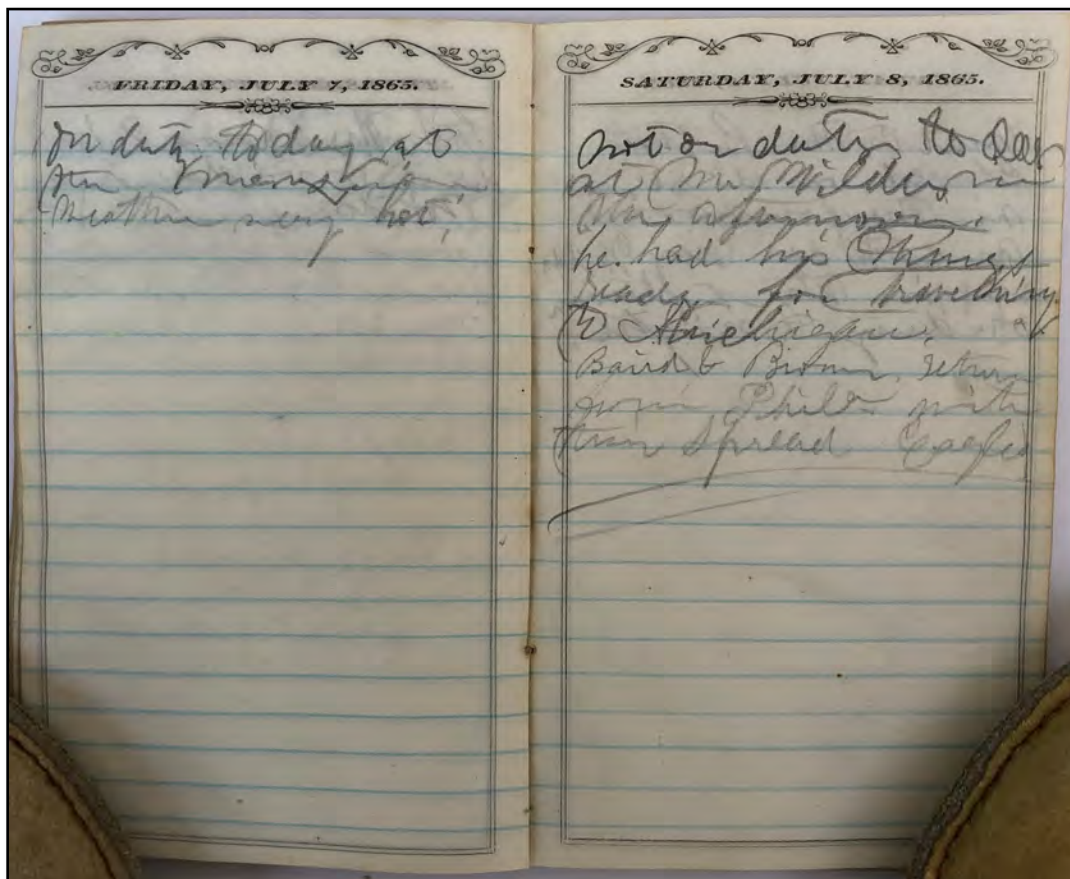 FRIDAY, JULY 7, 1865.
On duty today at
the
Weather very hot,
SATURDAY, JULY 8, 1865.
not on duty to Day
at Mr Wilders in
the afternoon.
he had his things
ready for travelling
to Michigan.
Baird & Brown return
from Phila with
their Spread Eagles